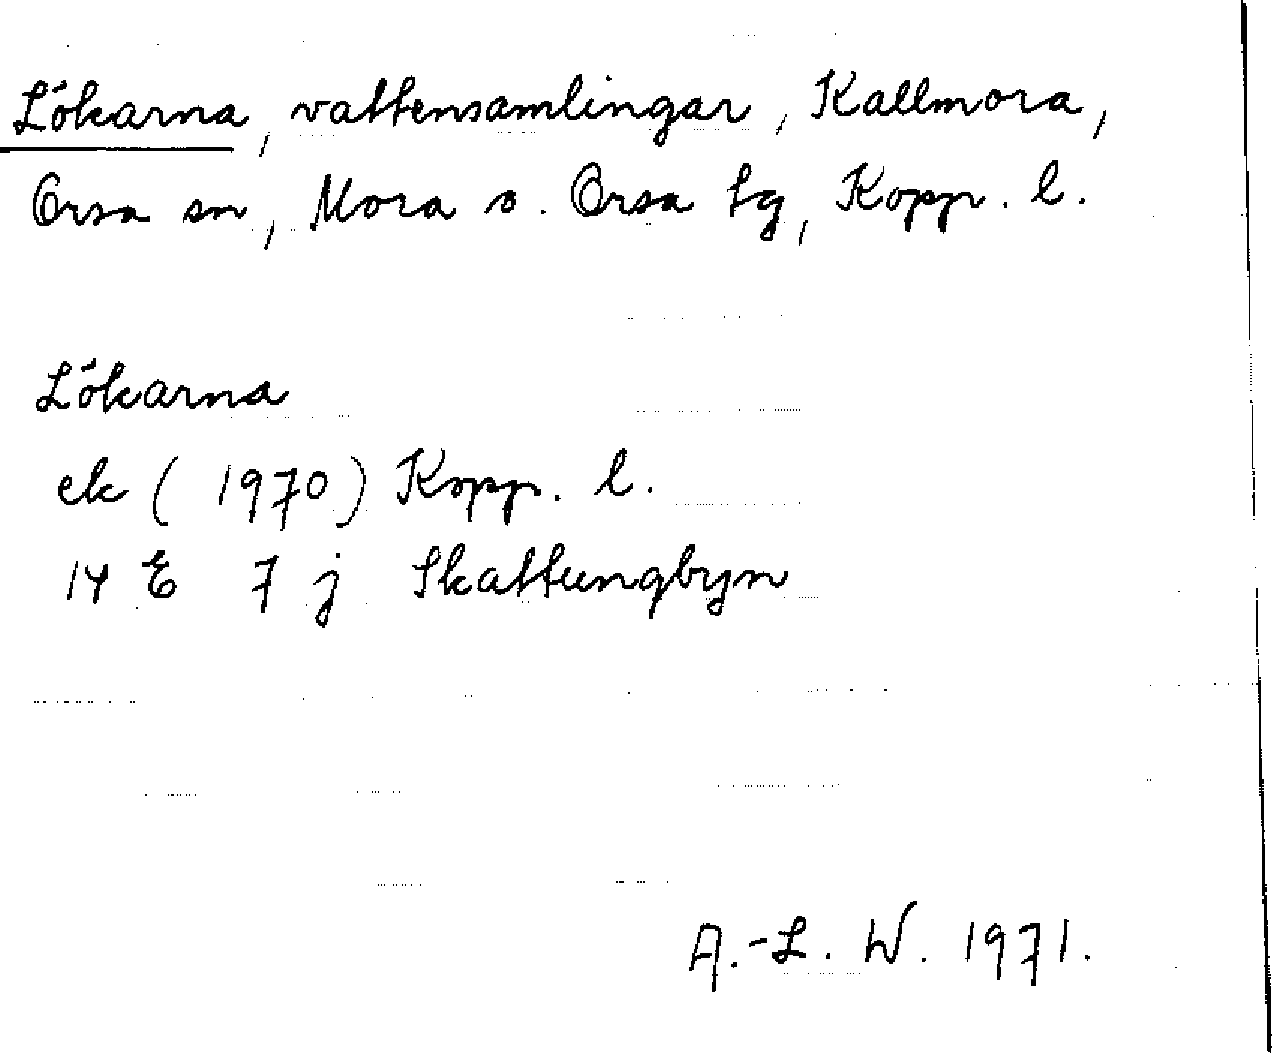 Lökarna, vattensamlingar, Kallmora,
Orsa sn, Mora o. Orsa tg, Kopp. l.
Lökarna
ek (1970) Kopp. l.
14 E 7 j Skattungbyn
A.-L. W. 1971.